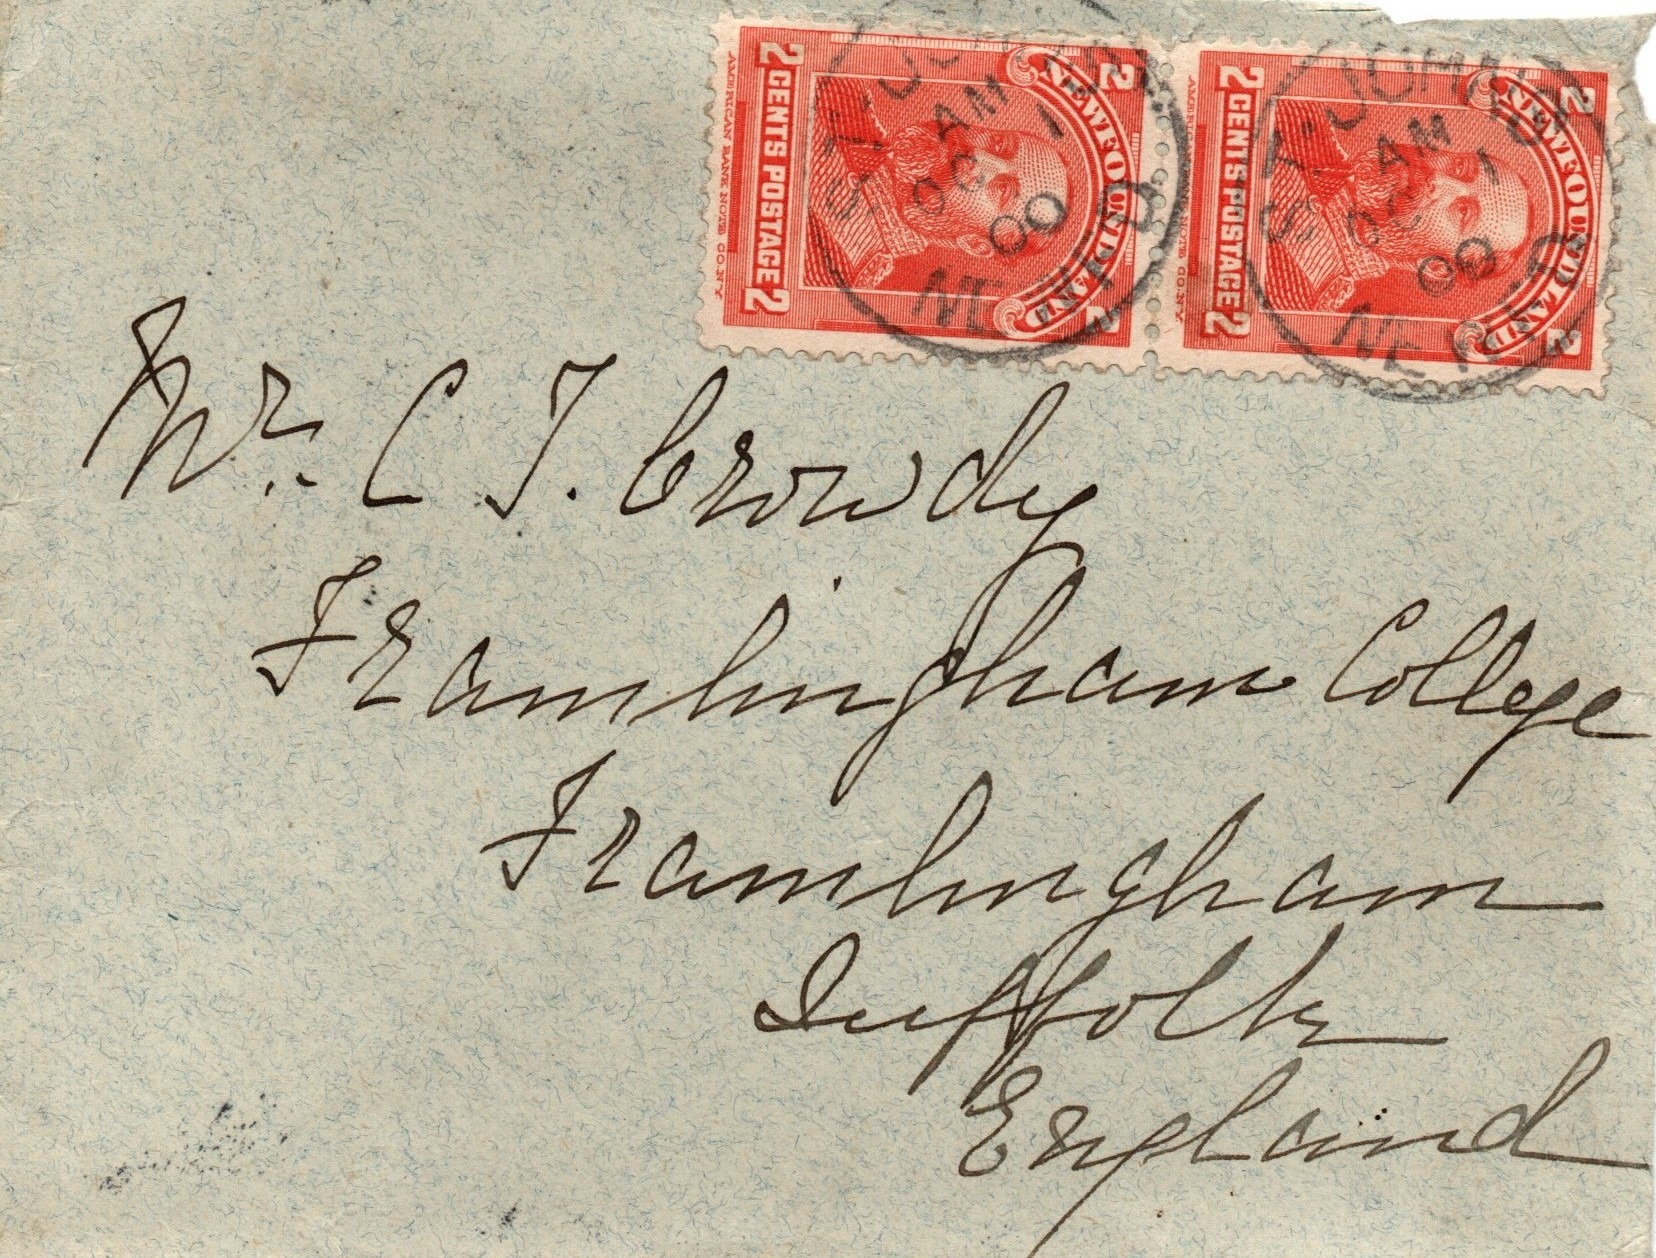 2 CENTS POSTAGE 2
NEWFOUNDLAND
2 2
AMERICAN BANK NOTE CO. N.Y.
ST. JOHN'S
AM
OC 1
00
NEWF'D
2 CENTS POSTAGE 2
NEWFOUNDLAND
2 2
ST. JOHN'S
AM
OC 1
00
Mr. C T. Crowdy
Framlingham College
Framlingham
Suffolk
England